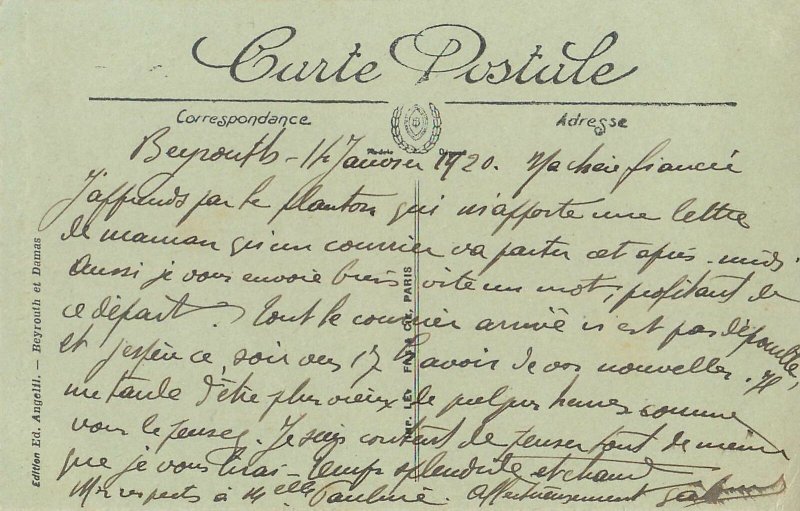 Carte Postale
Correspondance
Adresse
Beyrouth - 14 Janvier 1920. Ma chère fiancée
J'apprends par le planton qui m'apporte une lettre
de maman qu'un courrier va partir cet après-midi
Aussi je vous envoie bien vite un mot, profitant de
ce départ. Tout le courrier arrivé n'est pas dépouillé,
et j'espère ce soir vers 17 h avoir de vos nouvelles. Il
me tarde d'être plus vieux de quelques heures comme
vous le pensez. Je suis content de penser tout de même
que je vous Temps splendide et chaud
Mes respects à Melle Pauline. Affectueusement
Edition Ed. Angelil. — Beyrouth et Damas
IMP. LEV PARIS